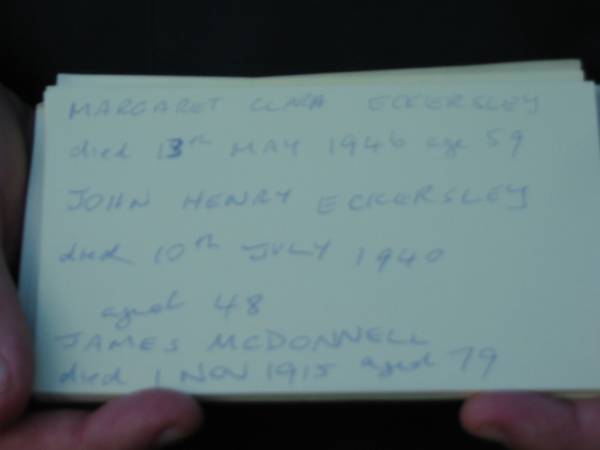 MARGARET CLARA ECKERSLEY
died 13th MAY 1946 age 59
JOHN HENRY ECKERSLEY
died 10th JULY 1940
aged 48
JAMES MCDONNELL
died 1 NOV 1915 aged 79